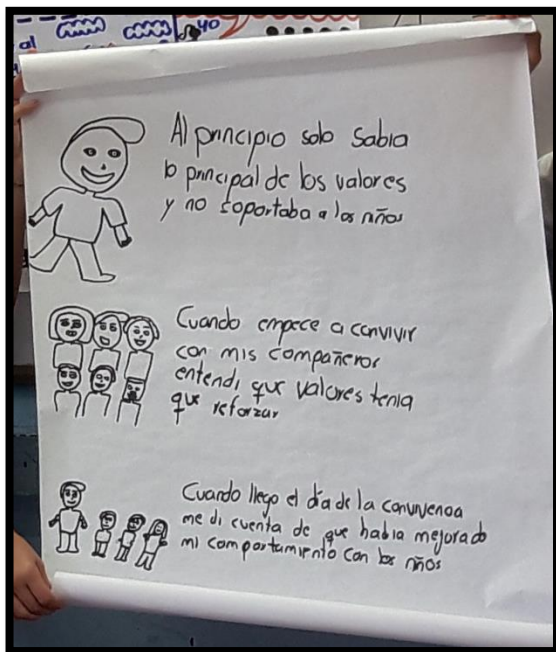 al
yo
Al principio solo Sabia
lo principal de los valores
y no soportaba a los niños
Cuando empece a convivir
con mis compañeros
entendi, que valores tenia
que reforzar
Cuando llego el día de la convivencia
me di cuenta de que habia mejorado
mi comportamiento con los niños